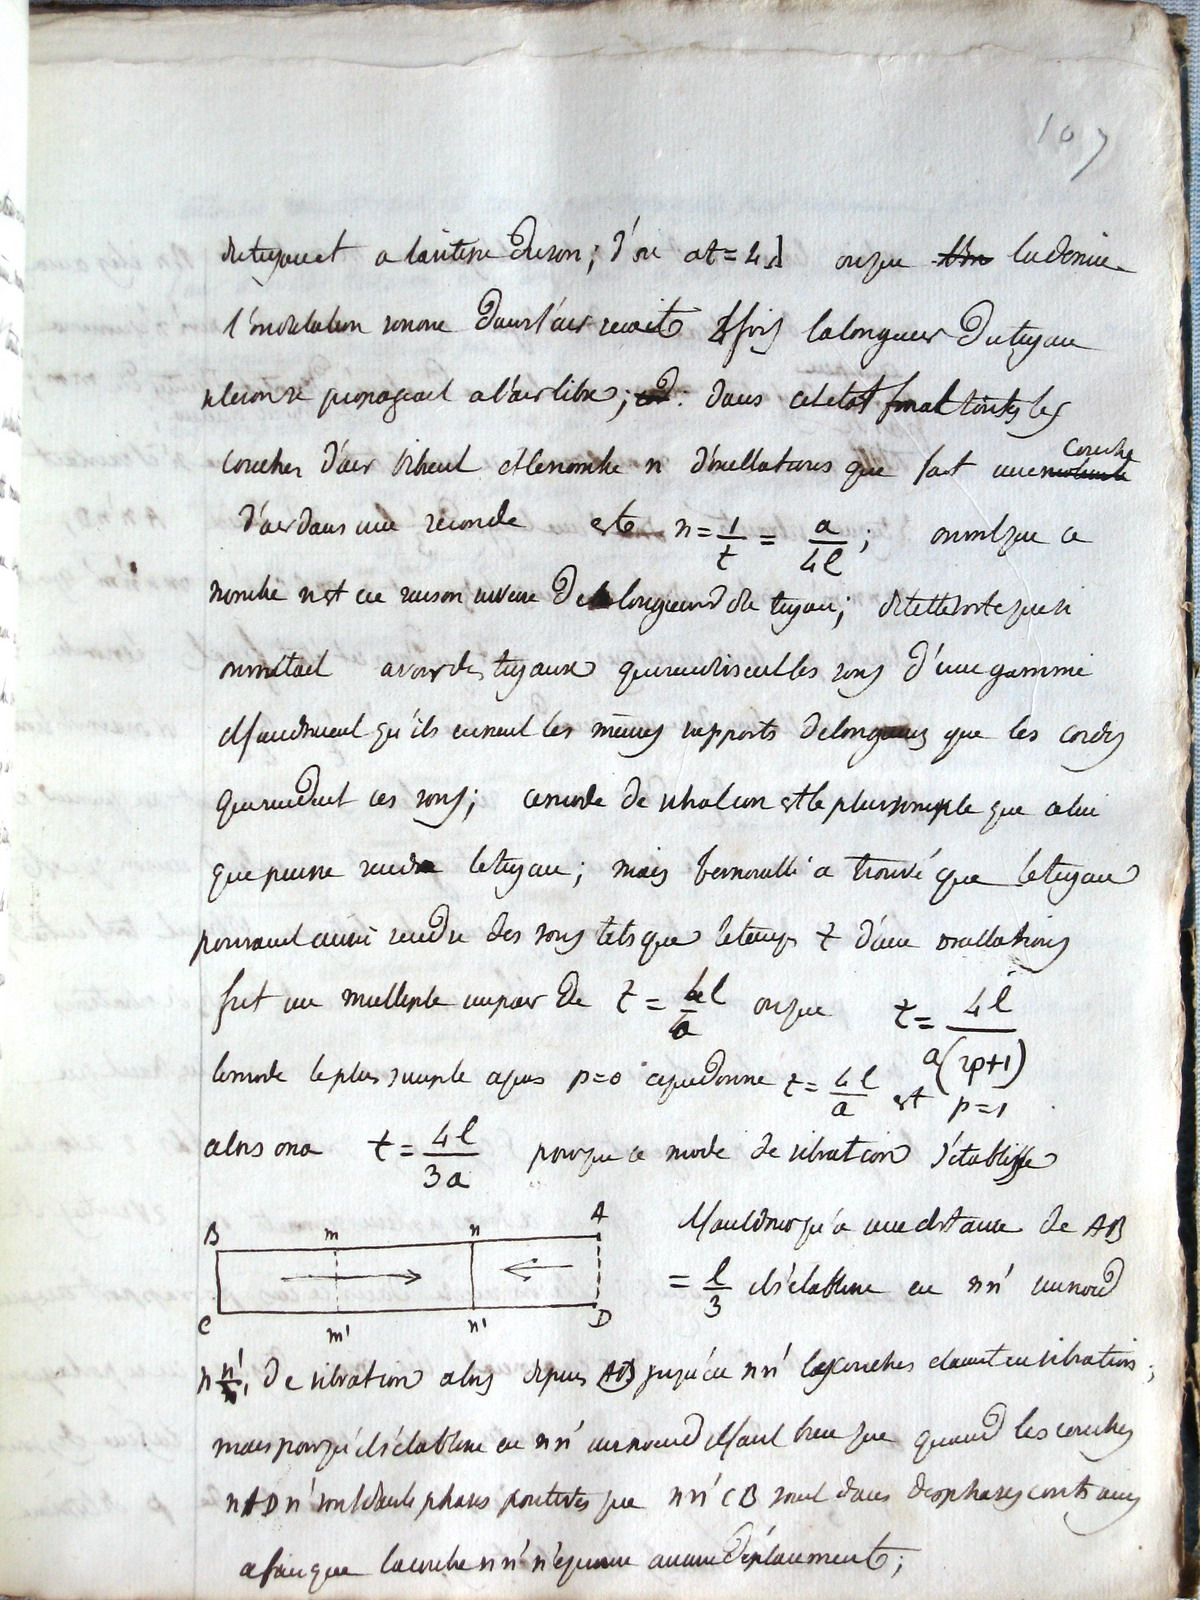 107
du tuyau et a la vitesse du son; d'où at = 4l ou que la demie
l'ondulation sonore dans l'air serait 4 fois la longueur du tuyau
si le son se propageait a l'air libre; dans cet état final toutes les
couches d'air vibrent et le nombre n d'oscillations que fait une couche
d'air dans une seconde est n = 1/t = a/4l; on voit que ce
nombre est en raison inverse de la longueur du tuyau; de telle sorte que si
on voulait avoir des tuyaux qui rendissent les sons d'une gamme
il faudrait qu'ils eussent les mêmes rapports de longueurs que les cordes
qui rendent ces sons; ce mode de vibration est le plus simple que celui
que puisse rendre le tuyau; mais bernoulli a trouvé que le tuyau
pouvait aussi rendre des sons tels que le temps t d'une oscillations
fut un multiple impair de t = 4l/a ou que t = 4l/a(2p+1)
le mode le plus simple a p = 0 ce qui donne t = 4l/a et p = 1
alors on a t = 4l/3a pour que ce mode de vibration s'établisse
B m n A
il faudra qu'a une distance de AD
= l/3 il s'établisse en nn' un noeud
C m' n' D
nn' de vibration alors depuis AD jusqu'en nn' les couches d'air sont en vibration;
mais pour qu'il s'établisse en nn' un noeud il faut bien que quand les couches
nADn' sont dans le phases positives que nn'CB soient dans des phases contraires
afin que la couche nn' n'éprouve aucun déplacement;